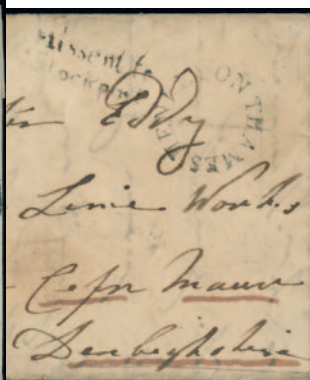 Missent to
Stockport
ON THAMES
Eddy
Lime Works
Cefn Mawr
Denbighshire